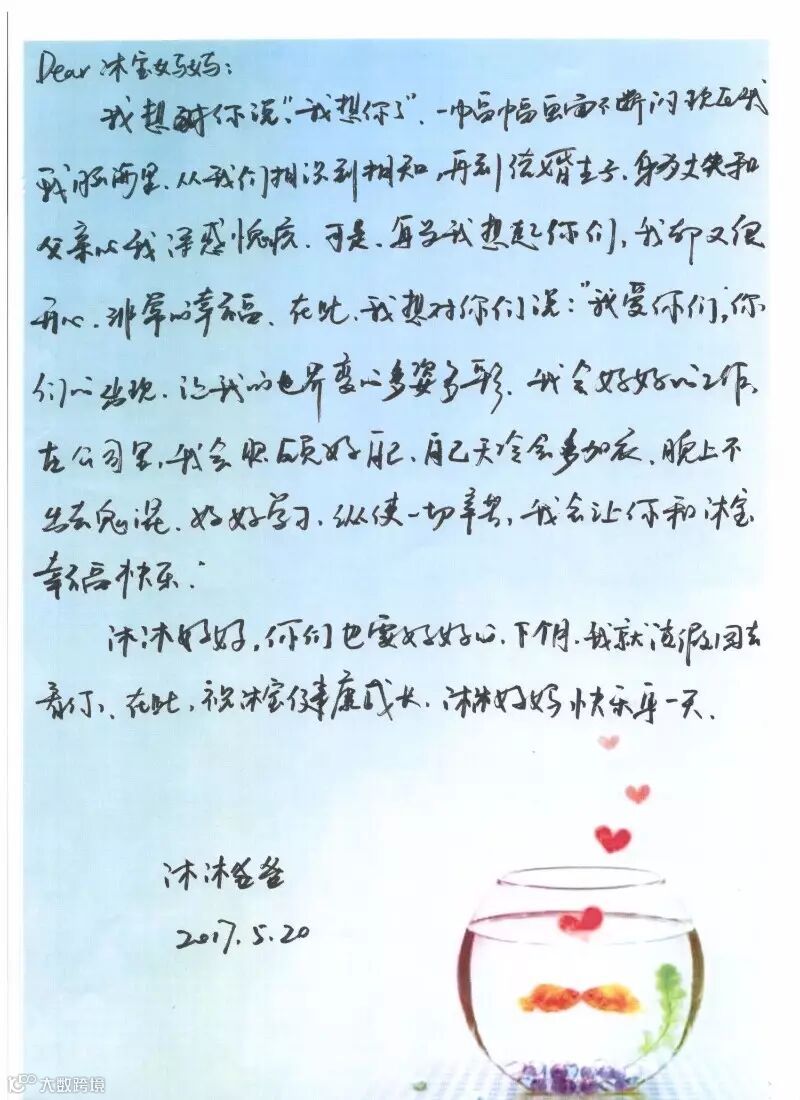 Dear 沐宝妈妈:
我想对你说"我想你了",一幅幅画面不断闪现在我
我脑海里.从我们相识到相知,再到结婚生子.身为丈夫和
父亲的我深感愧疚.可是,每当我想起你们,我却又很
开心.非常的幸福.在此,我想对你们说:"我爱你们,你
们的出现.让我的世界变的多姿多彩.我会好好的工作.
在公司里,我会照顾好自己.自己天冷会多加衣.晚上不
出去鬼混.好好学习.纵使一切辛苦,我会让你和沐宝
幸福快乐."
沐沐妈妈,你们也要好好的.下个月.我就请假回去
看你.在此,祝沐宝健康成长.沐沐妈妈快乐每一天.
沐沐爸爸
2017.5.20
大数跨境